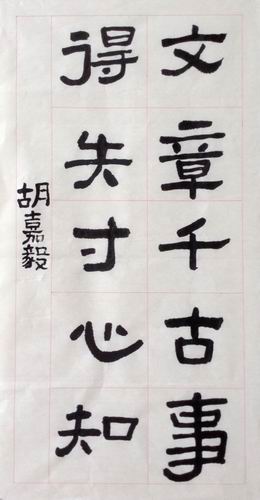 文章千古事
得失寸心知
胡嘉毅